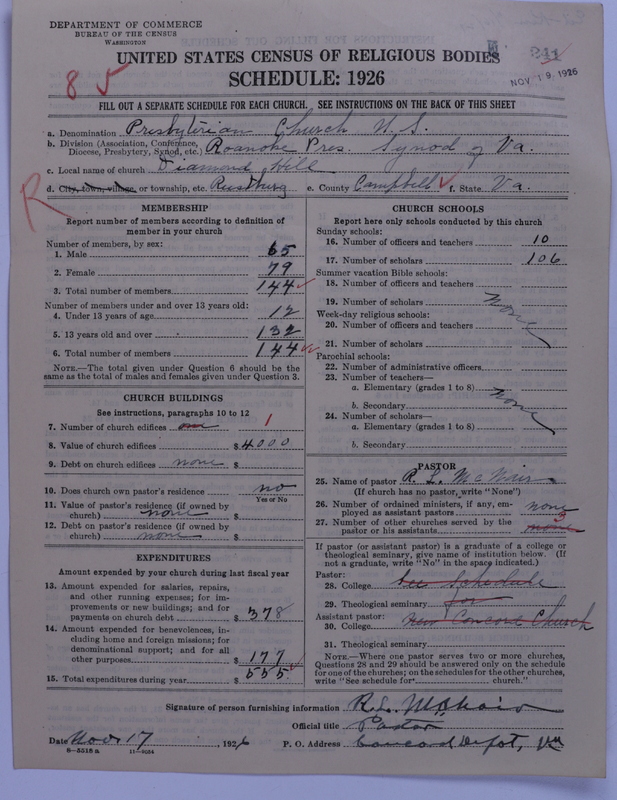 DEPARTMENT OF COMMERCE
BUREAU OF THE CENSUS
WASHINGTON
241
NOV 19 1926
UNITED STATES CENSUS OF RELIGIOUS BODIES
SCHEDULE: 1926
8 5
FILL OUT A SEPARATE SCHEDULE FOR EACH CHURCH. SEE INSTRUCTIONS ON THE BACK OF THIS SHEET
a. Denomination Presbyterian Church U.S.
b. Division (Association, Conference, Diocese, Presbytery, Synod, etc.) Roanoke Pres. Synod of Va.
c. Local name of church Diamond Hill
d. City, town, village, or township, etc. Rustburg e. County Campbell f. State Va.
R
MEMBERSHIP
Report number of members according to definition of
member in your church
Number of members, by sex:
1. Male 65
2. Female 79
3. Total number of members 144
Number of members under and over 13 years old:
4. Under 13 years of age 12
5. 13 years old and over 132
6. Total number of members 144
NOTE.—The total given under Question 6 should be
same as the total of males and females given under Question 3.
CHURCH BUILDINGS
See instructions, paragraphs 10 to 12
7. Number of church edifices one 1
8. Value of church edifices $ 4000
9. Debt on church edifices none $
10. Does church own pastor's residence no
Yes or No
11. Value of pastor's residence (if owned by
church) none $
12. Debt on pastor's residence (if owned by
church) none $
EXPENDITURES
Amount expended by your church during last fiscal year
13. Amount expended for salaries, repairs,
and other running expenses; for im-
provements or new buildings; and for
payments on church debt $ 378
14. Amount expended for benevolences, in-
cluding home and foreign missions; for
denominational support; and for all
other purposes $ 177
15. Total expenditures during year $ 555
CHURCH SCHOOLS
Report here only schools conducted by this church
Sunday schools:
16. Number of officers and teachers 10
17. Number of scholars 106
Summer vacation Bible schools:
18. Number of officers and teachers
19. Number of scholars none
Week-day religious schools:
20. Number of officers and teachers
21. Number of scholars
Parochial schools:
22. Number of administrative officers
23. Number of teachers—
a. Elementary (grades 1 to 8) none
b. Secondary
24. Number of scholars—
a. Elementary (grades 1 to 8)
b. Secondary
PASTOR
25. Name of pastor R. L. McNair
(If church has no pastor, write "None")
26. Number of ordained ministers, if any, em-
ployed as assistant pastors none
27. Number of other churches served by the
pastor or his assistants none 3
If pastor (or assistant pastor) is a graduate of a college or
theological seminary, give name of institution below. (If
not a graduate, write "No" in the space indicated.)
Pastor:
28. College See Schedule
29. Theological seminary for
Assistant pastor:
30. College New Concord Church
31. Theological seminary
NOTE.—Where one pastor serves two or more churches,
Questions 28 and 29 should be answered only on the schedule
for one of the churches; on the schedules for the other churches,
write "See schedule for church."
Signature of person furnishing information R. L. McNair
Official title Pastor
Date Nov 17, 1926 P. O. Address Concord Depot, Va
8-5516 a